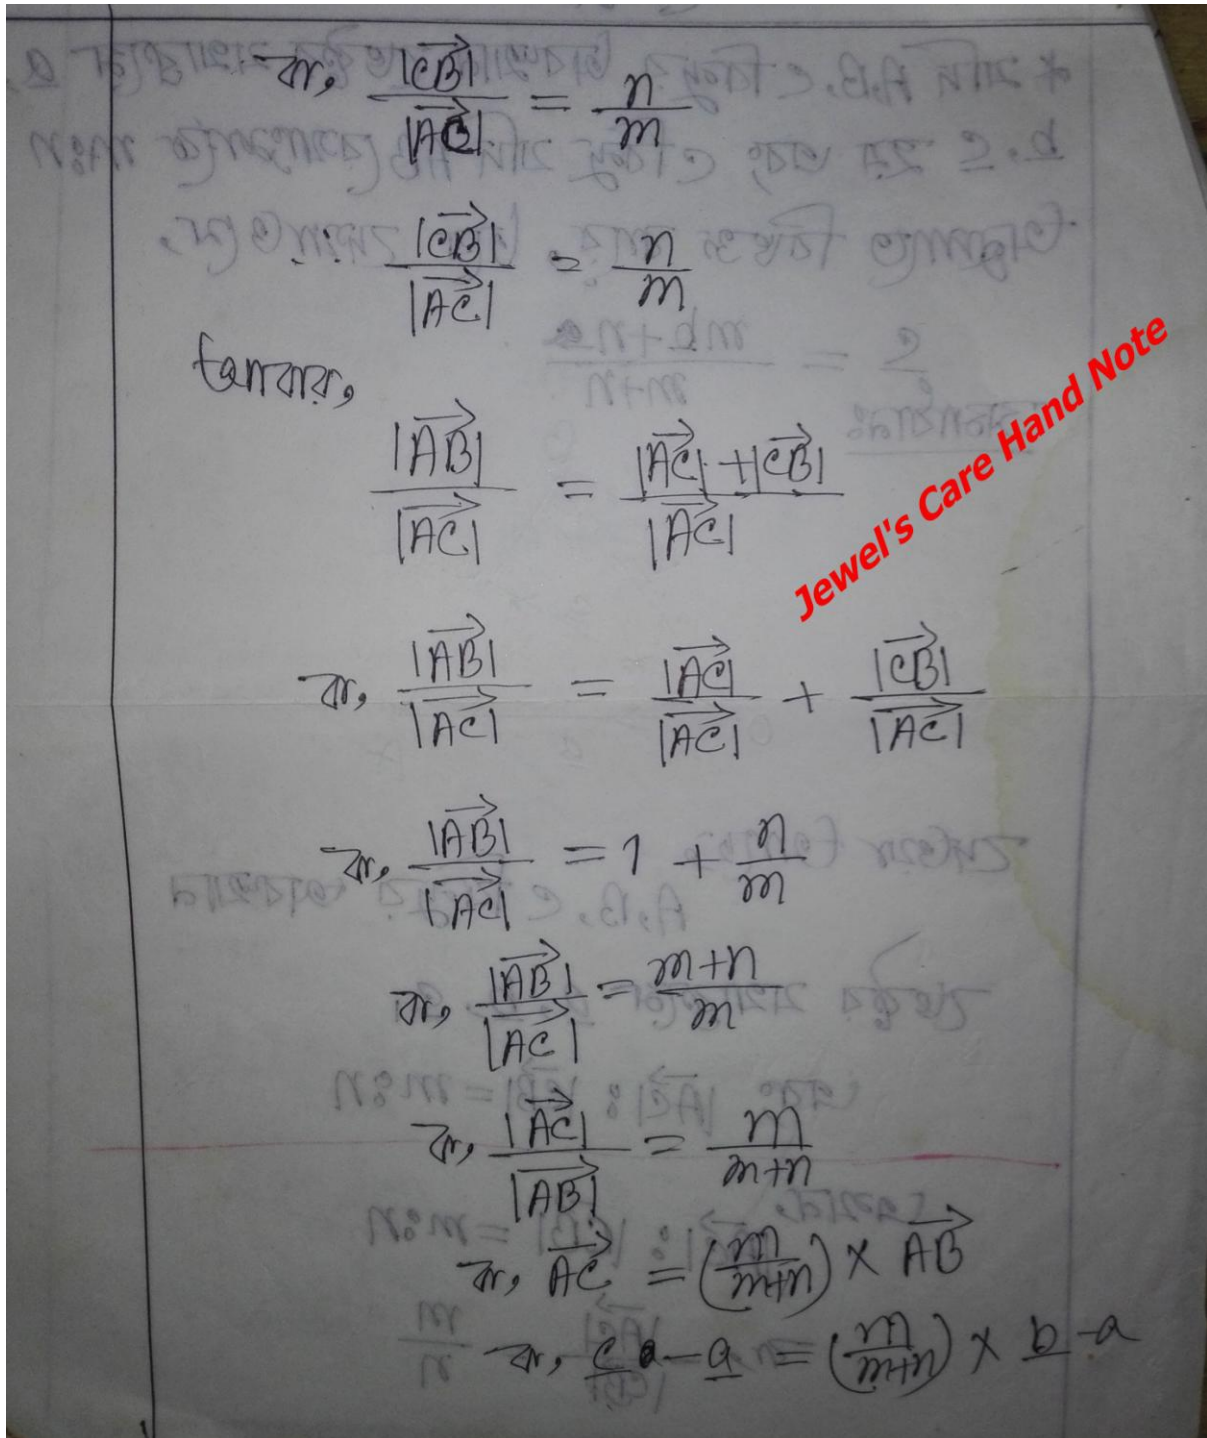 বা, |CB⃗| / |AC⃗| = n/m
∴ |CB⃗| / |AC⃗| = n/m
আবার,
|AB⃗| / |AC⃗| = (|AC⃗| + |CB⃗|) / |AC⃗|
Jewel's Care Hand Note
বা, |AB⃗| / |AC⃗| = |AC⃗| / |AC⃗| + |CB⃗| / |AC⃗|
বা, |AB⃗| / |AC⃗| = 1 + n/m
বা, |AB⃗| / |AC⃗| = (m+n)/m
বা, |AC⃗| / |AB⃗| = m/(m+n)
বা, AC⃗ = (m/(m+n)) × AB⃗
বা, c̲ - a̲ = (m/(m+n)) × b̲ - a